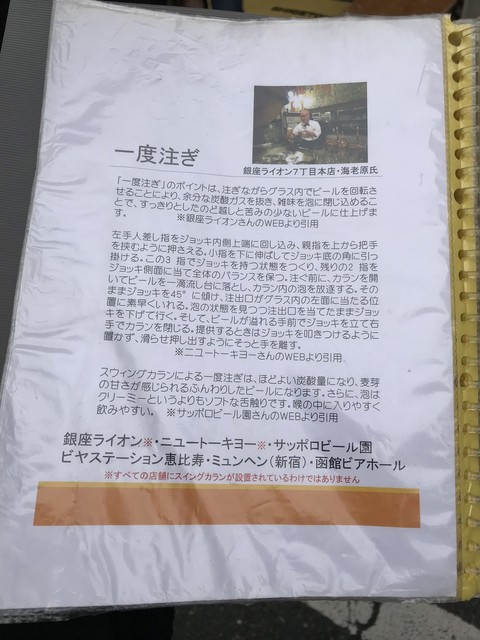 銀座ライオン7丁目本店・海老原氏
一度注ぎ
「一度注ぎ」のポイントは、注ぎながらグラス内でビールを回転さ
せることにより、余分な炭酸ガスを抜き、雑味を泡に閉じ込めるこ
とで、すっきりとしたのど越しと苦みの少ないビールに仕上げま
す。
※銀座ライオンさんのWEBより引用
左手人差し指をジョッキ内側上端に回し込み、親指を上から把手
を挟むように押さえる。小指を下に伸ばしてジョッキ底の角に引っ
掛ける。この3 指でジョッキを持つ状態をつくり、残りの2 指を
ジョッキ側面に当て全体のバランスを保つ。注ぐ前に、カランを開
いてビールを一滴流し台に落とし、カラン内の泡を放逐する。その
ままジョッキを45°に傾け、注出口がグラス内の左面に当たる位
置に素早くいれる。泡の状態を見つつ注出口を当てたままジョッ
キを下げて行く。そして、ビールが溢れる手前でジョッキを立て右
手でカランを閉じる。提供するときはジョッキを叩きつけるように
置かず、滑らせ押し出すようにそっと手を離す。
※ニユートーキヨーさんのWEBより引用
スウィングカランによる一度注ぎは、ほどよい炭酸量になり、麦芽
の甘さが感じられるふんわりしたビールになります。さらに、泡は
クリーミーというよりもソフトな舌触りです。喉の中に入りやすく
飲みやすい。 ※サッポロビール園さんのWEBより引用
銀座ライオン※・ニユートーキヨー※・サッポロビール園
ビヤステーション恵比寿・ミュンヘン(新宿)・函館ビアホール
※すべての店舗にスイングカランが設置されているわけではありません